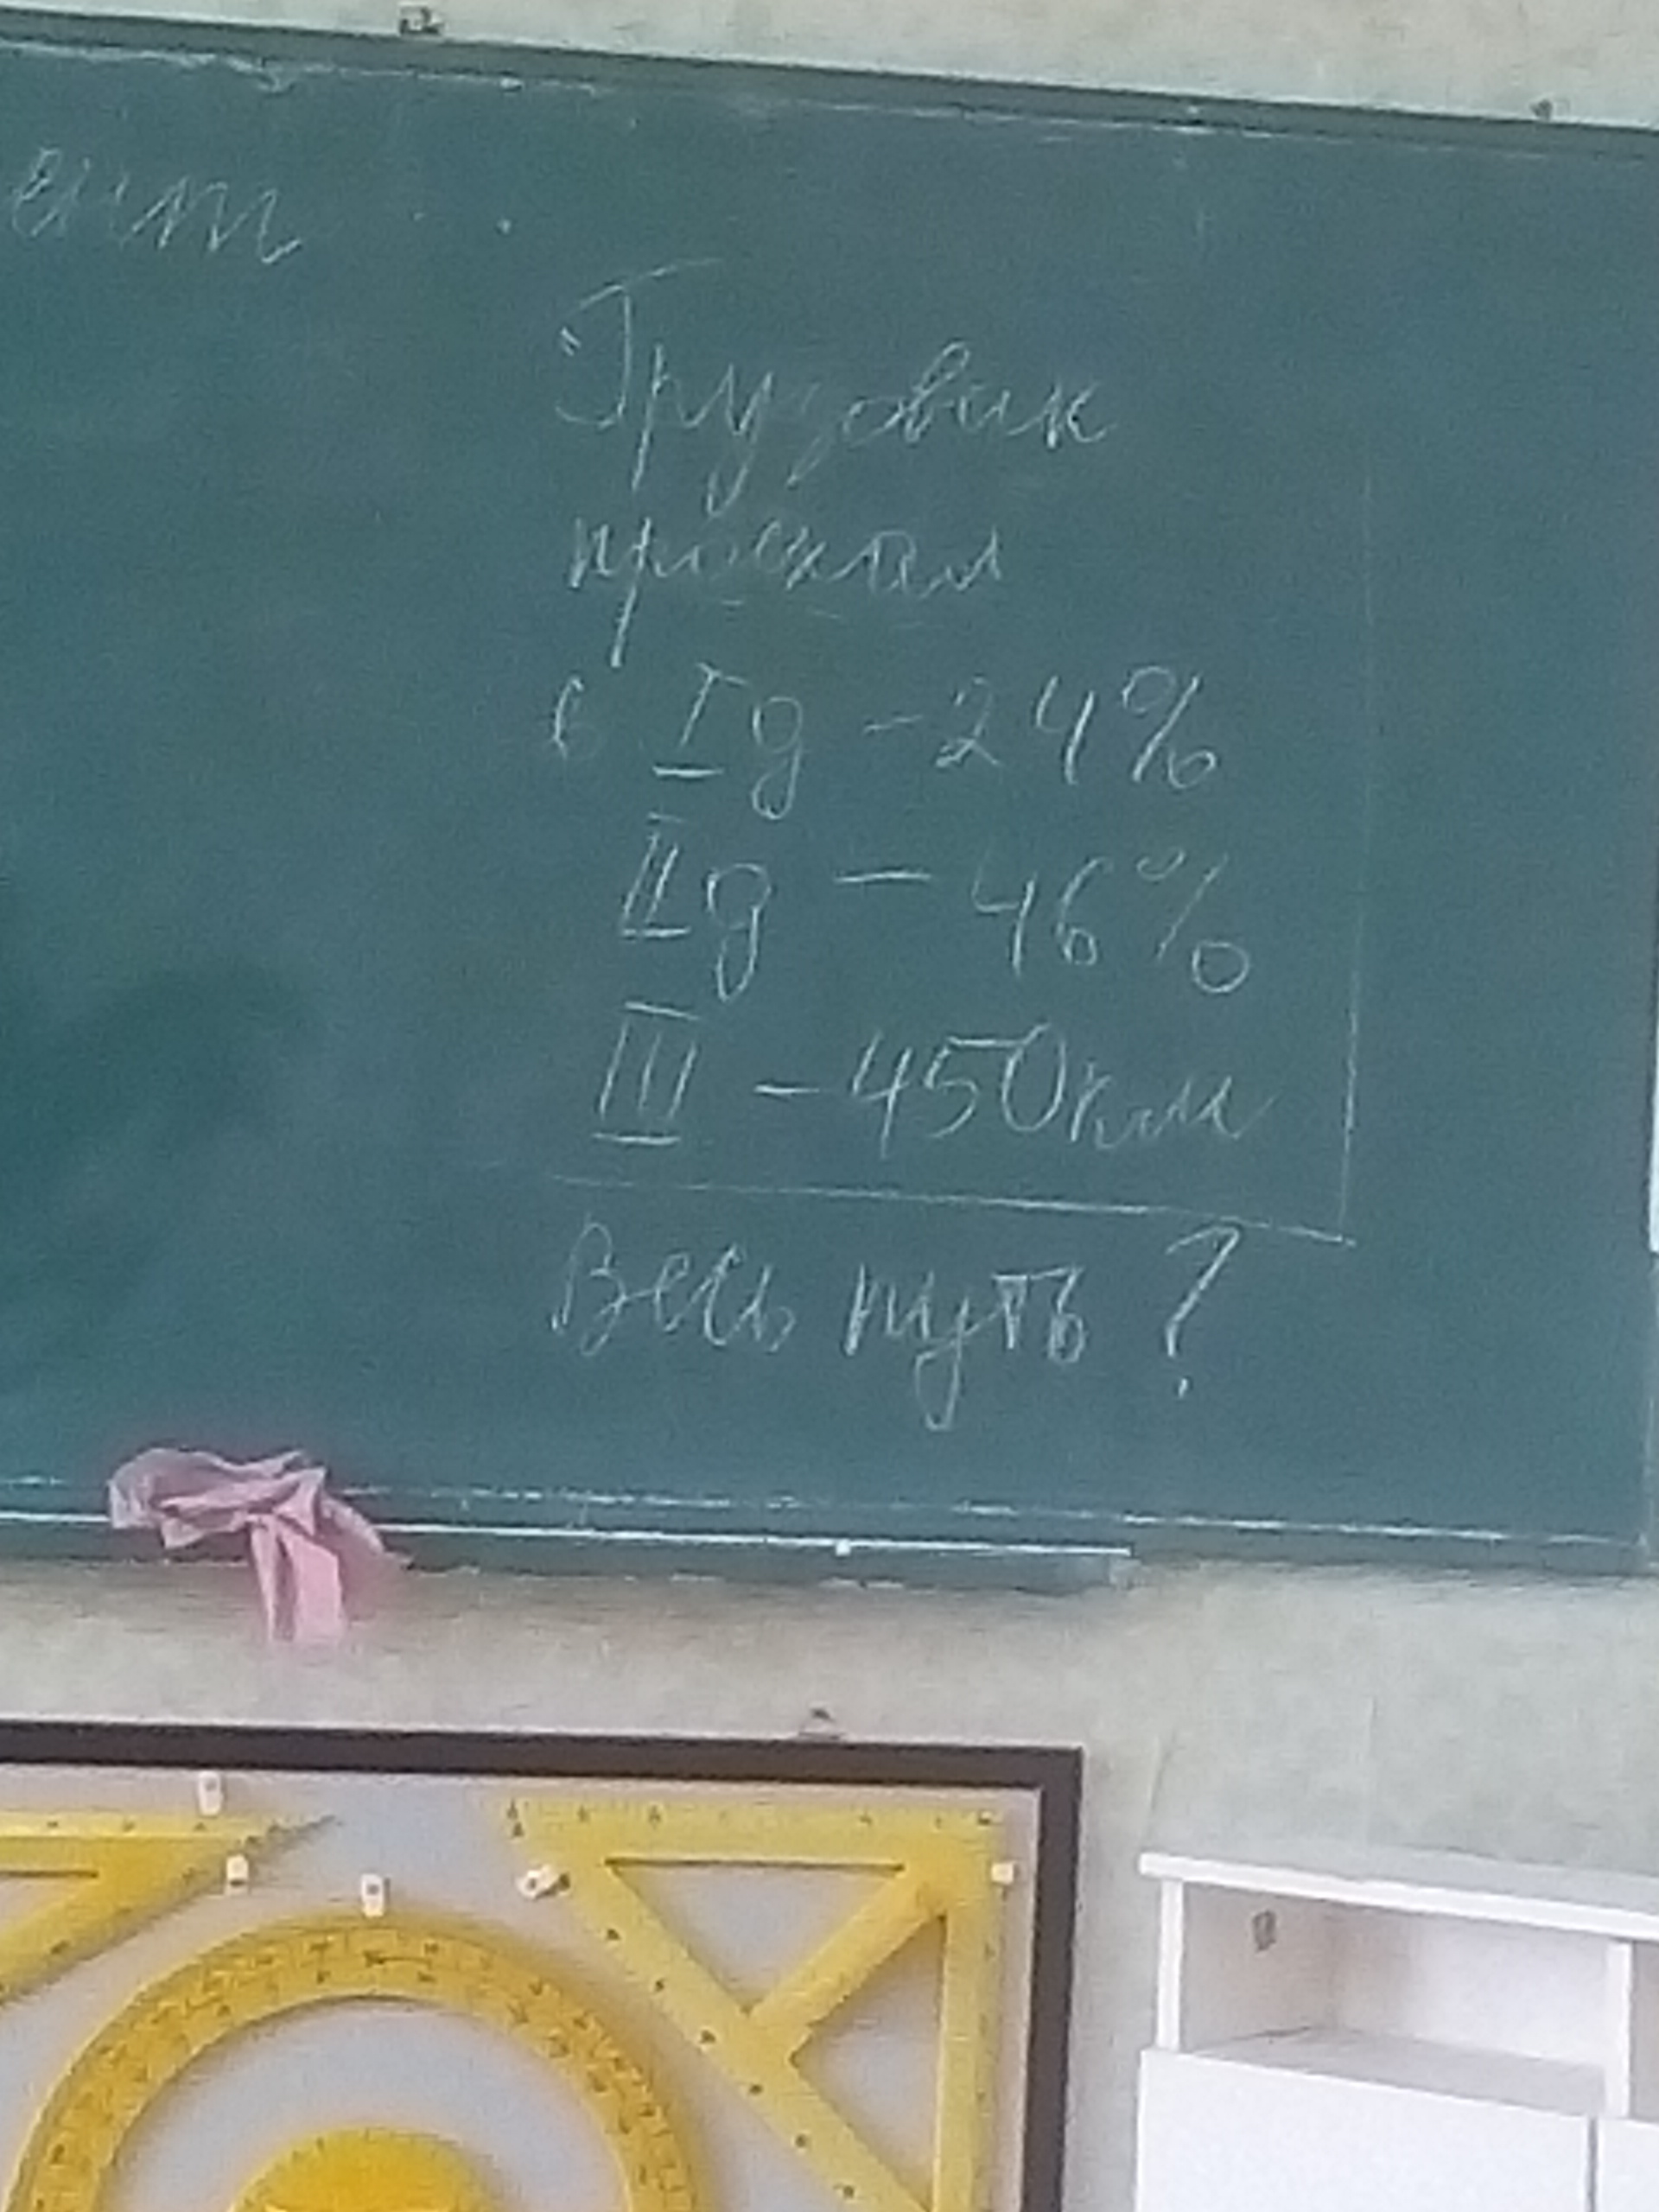 ент
Грузовик
проехал
в I д - 24%
II д - 46%
III - 450км
Весь путь?